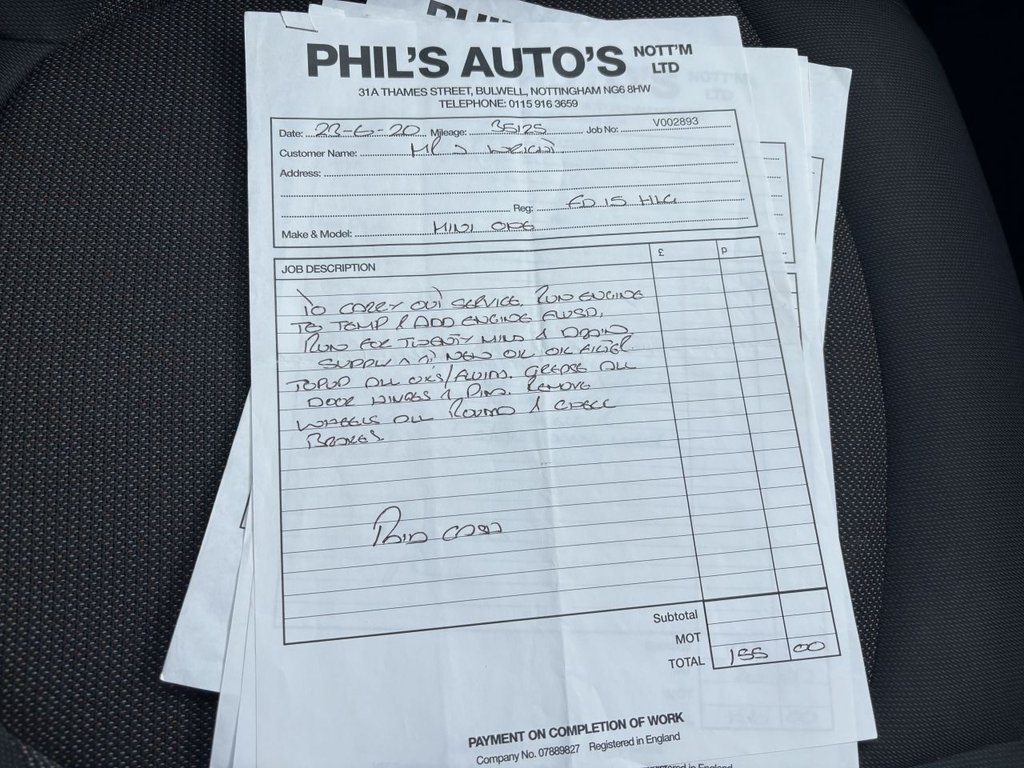 PHIL'S AUTO'S NOTT'M LTD
31A THAMES STREET, BULWELL, NOTTINGHAM NG6 8HW
TELEPHONE: 0115 916 3659
Date: 23-6-20 Mileage: 35125 Job No: V002893
Customer Name: MR J WRIGHT
Address:
Reg: FD15 HLG
Make & Model: MINI ONE
JOB DESCRIPTION £ P
TO CARRY OUT SERVICE. RUN ENGINE
TO TEMP & ADD ENGINE FLUSH,
RUN FOR TWENTY MINS & DRAIN
SUPPLY & FIT NEW OIL OIL FILTER.
TOPUP ALL OILS/FLUIDS. GREASE ALL
DOOR HINGES & PINS. REMOVE
WHEELS ALL ROUND & CHECK
BRAKES.
PAID CASH
Subtotal
MOT
TOTAL 155 00
PAYMENT ON COMPLETION OF WORK
Company No. 07889827 Registered in England